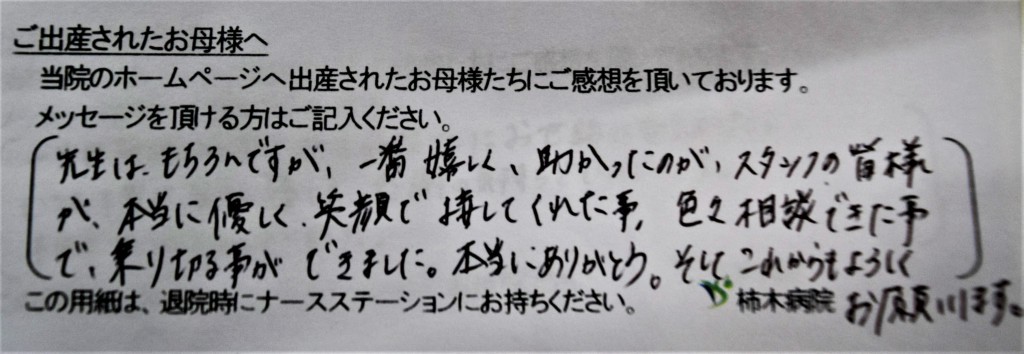 ご出産されたお母様へ
当院のホームページへ出産されたお母様たちにご感想を頂いております。
メッセージを頂ける方はご記入ください。
先生は、もちろんですが、一番嬉しく、助かったのが、スタッフの皆様
が、本当に優しく、笑顔で接してくれた事、色々相談できた事
で、乗り切る事ができました。本当にありがとう。そしてこれからもよろしく
お願いします。
この用紙は、退院時にナースステーションにお持ちください。
柿木病院